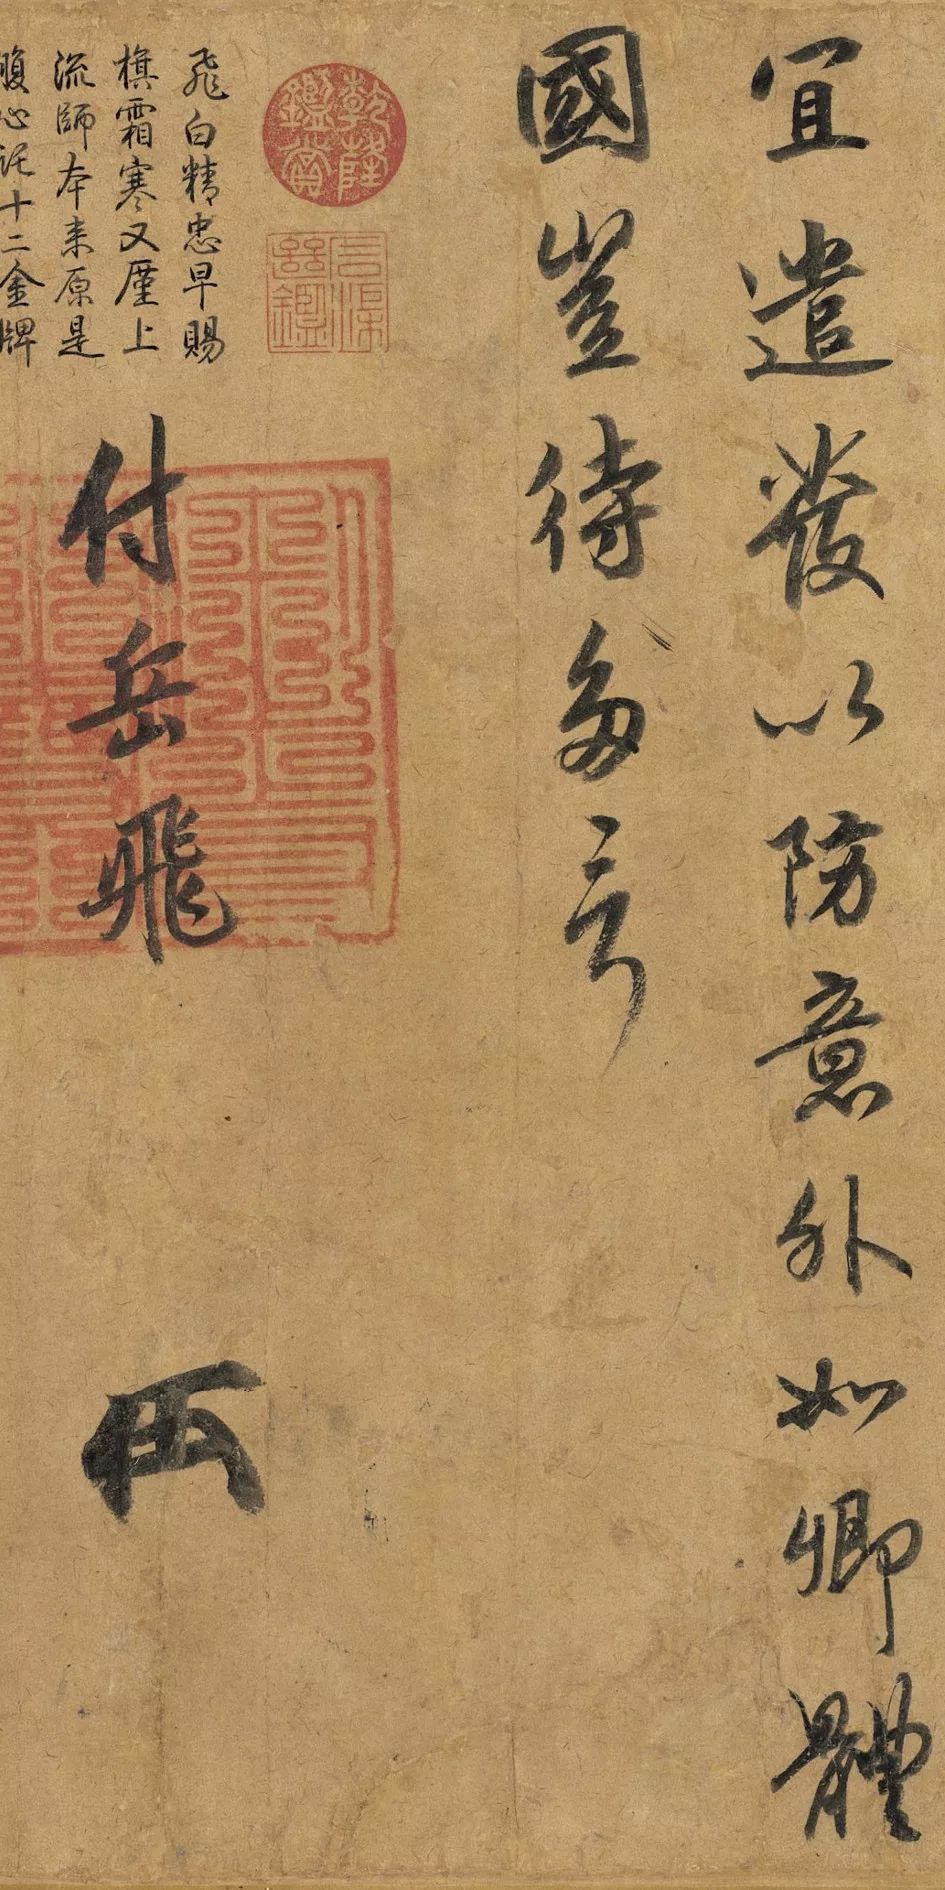 宜遣發以防意外如卿體
國豈待多言
乾隆鑑賞
付岳飛
飛白精忠早賜
旗霜寒又廑上
流師本来原是
腹心託十二金牌